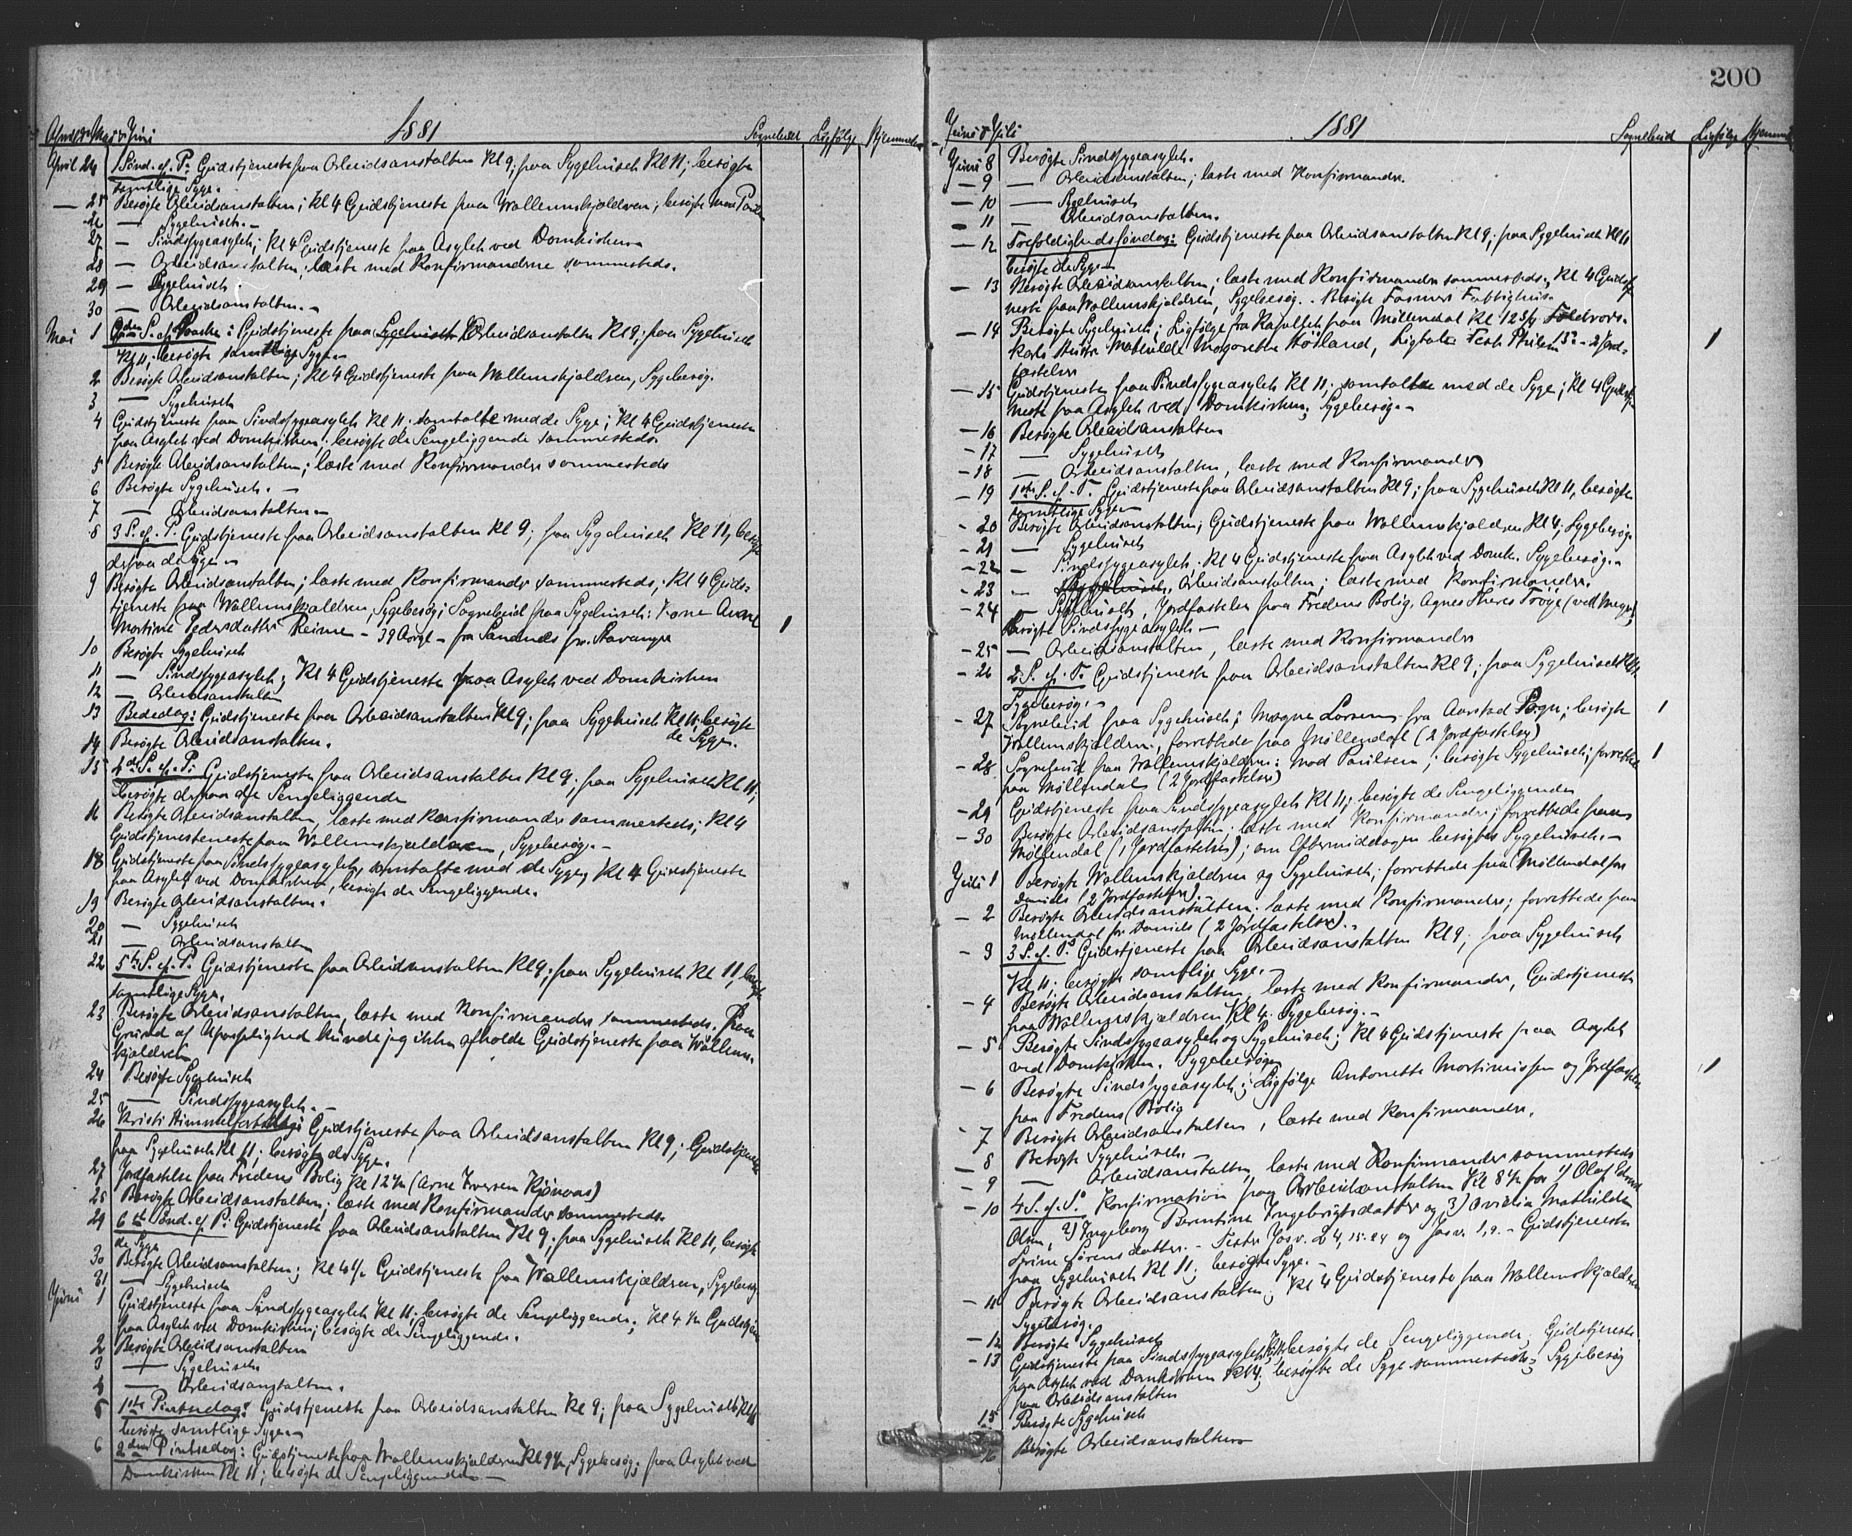 April, Mai & Juni 1881 Sognebud Ligfølge Hjemmeb
April 24 1 Sønd. ef. P. Gudstjeneste paa Arbeidsanstalten Kl 9; paa Sygehuset Kl 11; besøgte
samtlige Syge.
— 25 Besøgte Arbeidsanstalten; Kl 4 Gudstjeneste paa Wallemskjældren; besøgte
26 — Sygehuset. —
27 — Sindssygeasylet; Kl 4 Gudstjeneste paa Asylet ved Domkirken
28 — Arbeidsanstalten; læste med Konfirmanderne sammesteds.
29 — Sygehuset.
30 — Arbeidsanstalten. —
Mai 1 2den S. ef. Paaske: Gudstjeneste paa Sygehuset Arbeidsanstalten Kl 9; paa Sygehuset
Kl 11; besøgte samtlige Syge. —
2 Besøgte Arbeidsanstalten; Kl 4 Gudstjeneste paa Wallemskjældren, Sygebesøg.
3 — Sygehuset
4 Gudstjeneste paa Sindssygeasylet Kl 11. samtalte med de Syge; Kl 4 Gudstjeneste
paa Asylet ved Domkirken; besøgte de Sengeliggende sammesteds.
5 Besøgte Arbeidsanstalten; læste med Konfirmander sammesteds
6 Besøgte Sygehuset. —
7 — Arbeidsanstalten —
8 3 S. ef. P. Gudstjeneste paa Arbeidsanstalten Kl 9; paa Sygehuset Kl 11, besøgte
derpaa de Syge —
9 Besøgte Arbeidsanstalten; læste med Konfirmander sammesteds, Kl 4 Guds-
tjeneste paa Wallemskjældren, Sygebesøg; Sognebud paa Sygehuset:
Mortine Pedersdatter Reime — 39 Aar gl — fra Sandnes pr. Stavanger 1
10 Besøgte Sygehuset
11 — Sindssygeasylet; Kl 4 Gudstjeneste paa Asylet ved Domkirken
12 — Arbeidsanstalten
13 Bededag: Gudstjeneste paa Arbeidsanstalten Kl 9; paa Sygehuset Kl 11; besøgte
de Syge.
14 Besøgte Arbeidsanstalten.
15 4de S. ef. P: Gudstjeneste paa Arbeidsanstalten Kl 9. paa Sygehuset Kl 11;
besøgte derpaa de Sengeliggende
16 Besøgte Arbeidsanstalten, læste med Konfirmander sammesteds; Kl 4
Gudstjenesteneste paa Wallemskjældren, Sygebesøg. —
18 Gudstjeneste paa Sindssygeasylet, samtalte med de Syge; Kl 4 Gudstjeneste
paa Asylet ved Domkirken, besøgte de Sengeliggende.
19 Besøgte Arbeidsanstalten.
20 — Sygehuset
21 — Arbeidsanstalten
22 5te S. ef. P. Gudstjeneste paa Arbeidsanstalten Kl 9; paa Sygehuset Kl 11, besøgte
samtlige Syge.
23 Besøgte Arbeidsanstalten, læste med Konfirmander sammesteds. Paa
Grund af Upasselighed kunde jeg ikke afholde Gudstjeneste paa Wallem-
kjældren
24 Besøgte Sygehuset
25 — Sindssygeasylet. —
26 Kristi Himmelfartsdag: Gudstjeneste paa Arbeidsanstalten Kl 9; Gudstjeneste
paa Sygehuset Kl 11; besøgte de Syge.
27 Jordfæstelse paa Fredens Bolig Kl 12 1/2 (Arne Iversen)
28 Besøgte Arbeidsanstalten; læste med Konfirmander sammesteds.
29 6te Sønd. ef. P: Gudstjeneste paa Arbeidsanstalten Kl 9; paa Sygehuset Kl 11, besøgte
de Syge
30 Besøgte Arbeidsanstalten; Kl 4 1/2 Gudstjeneste paa Wallemskjældren, Sygebesøg
31 — Sygehuset
Juni 1 Gudstjeneste paa Sindssygeasylet Kl 11; besøgte de Sengeliggende; Kl 4 1/2 Gudstjen
paa Asylet ved Domkirken; besøgte de Sengeliggende.
2 Besøgte Arbeidsanstalten
3 — Sygehuset.
4 — Arbeidsanstalten.
5 1ste Pintsedag: Gudstjeneste paa Arbeidsanstalten Kl 9; paa Sygehuset Kl 11
besøgte samtlige Syge. —
6 2den Pintsedag: Gudstjeneste paa Wallemskjældren Kl 9 1/2, Sygebesøg; paa Asylet ved
Domkirken Kl 11; besøgte de Sengeliggende. —
200
Juni & Juli 1881 Sognebud Ligfølge Hjemmeb
Juni 8 Besøgte Sindssygeasylet.
— 9 — Arbeidsanstalten; læste med Konfirmander.
— 10 — Sygehuset
— 11 — Arbeidsanstalten.
— 12 Trefoldighedssøndag: Gudstjeneste paa Arbeidsanstalten Kl 9; paa Sygehuset Kl 11
besøgte de Syge —
— 13 Besøgte Arbeidsanstalten; læste med Konfirmander sammesteds; Kl 4 Gudstje-
neste paa Wallemskjældren, Sygebesøg. Besøgte Fattighus.
— 14 Besøgte Sygehuset; Ligfølge fra Kapellet paa Møllendal Kl 12 3/4
Mathilde Margrethe, Ligtale 1 — 2 Jord-
fæstelser
— 15 Gudstjeneste paa Sindssygeasylet Kl 11; samtalte med de Syge; Kl 4 Gudstje-
neste paa Asylet ved Domkirken; Sygebesøg. —
— 16 Besøgte Arbeidsanstalten
— 17 — Sygehuset
— 18 — Arbeidsanstalten, læste med Konfirmander
— 19 1ste S. ef. T. Gudstjeneste paa Arbeidsanstalten Kl 9; paa Sygehuset Kl 11, besøgte
samtlige Syge —
— 20 Besøgte Arbeidsanstalten; Gudstjeneste paa Wallemskjældren Kl 4; Sygebesøg.
— 21 — Sygehuset
— 22 — Sindssygeasylet. Kl 4 Gudstjeneste paa Asylet ved Domk. Sygebesøg. —
— 23 — Sygehuset, Arbeidsanstalten; læste med Konfirmander.
— 24 — Sygehuset, Jordfæstelse paa Fredens Bolig,
besøgte Sindssygeasylet —
— 25 — Arbeidsanstalten, læste med Konfirmander
— 26 2. S. ef. T. Gudstjeneste paa Arbeidsanstalten Kl 9; paa Sygehuset Kl 11.
Sygebesøg. —
— 27 Sognebud paa Sygehuset; Magne Larsen fra Aarstad Sogn; besøgte 1
Wallemskjældren, forrettede paa Møllendal (2 Jordfæstelser)
— 28 Sognebud paa Wallemskjældren: Mad Paulsen; besøgte Sygehuset; forrettede 1
paa Møllendal (2 Jordfæstelser)
— 29 Gudstjeneste paa Sindssygeasylet Kl 11; besøgte de Sengeliggende
— 30 Besøgte Arbeidsanstalten; læste med Konfirmander; forrettede paa
Møllendal (1 Jordfæstelse); om Eftermiddagen besøgtes Sygehuset. —
Juli 1 Besøgte Wallemskjældren og Sygehuset; forrettede paa Møllendal for
Daniels (2 Jordfæstelser).
— 2 Besøgte Arbeidsanstalten; læste med Konfirmander; forrettede paa
Møllendal for Daniels (2 Jordfæstelser). —
— 3 3 S. ef. T. Gudstjeneste paa Arbeidsanstalten Kl 9; paa Sygehuset
Kl 11. besøgte samtlige Syge. —
— 4 Besøgte Arbeidsanstalten, læste med Konfirmander, Gudstjeneste
paa Wallemskjældren Kl 4. Sygebesøg. —
— 5 Besøgte Sindssygeasylet og Sygehuset; Kl 4 Gudstjeneste paa Asylet
ved Domkirken. Sygebesøg
— 6 Besøgte Sindssygeasylet; Ligfølge Antonette Mortinussen og Jordfæstelse 1
paa Fredens Bolig
— 7 Besøgte Arbeidsanstalten, læste med Konfirmander.
— 8 Besøgte Sygehuset —
— 9 — Arbeidsanstalten, læste med Konfirmander sammesteds
— 10 4. S. ef. T. Konfirmation paa Arbeidsanstalten Kl 8 1/2 for 1) Olaf
Olsen, 2) Ingeborg Berntine Ingebrigtsdatter og 3) Mathilde
Sørensdatter. — Text Jos. 24, 15-24 og Jos. 1, 9. — Gudstjeneste
paa Sygehuset Kl 11; besøgte Syge. —
— 11 Besøgte Arbeidsanstalten; Kl 4 Gudstjeneste paa Wallemskjældren
Sygebesøg.
— 12 Besøgte Sygehuset
— 13 Gudstjeneste paa Sindssygeasylet, besøgte de Sengeliggende; Gudstjeneste
paa Asylet ved Domkirken Kl 4; besøgte de Syge sammesteds; Sygebesøg
paa Arbeidsanstalten
15 Besøgte Sygehuset
16 Besøgte Arbeidsanstalten